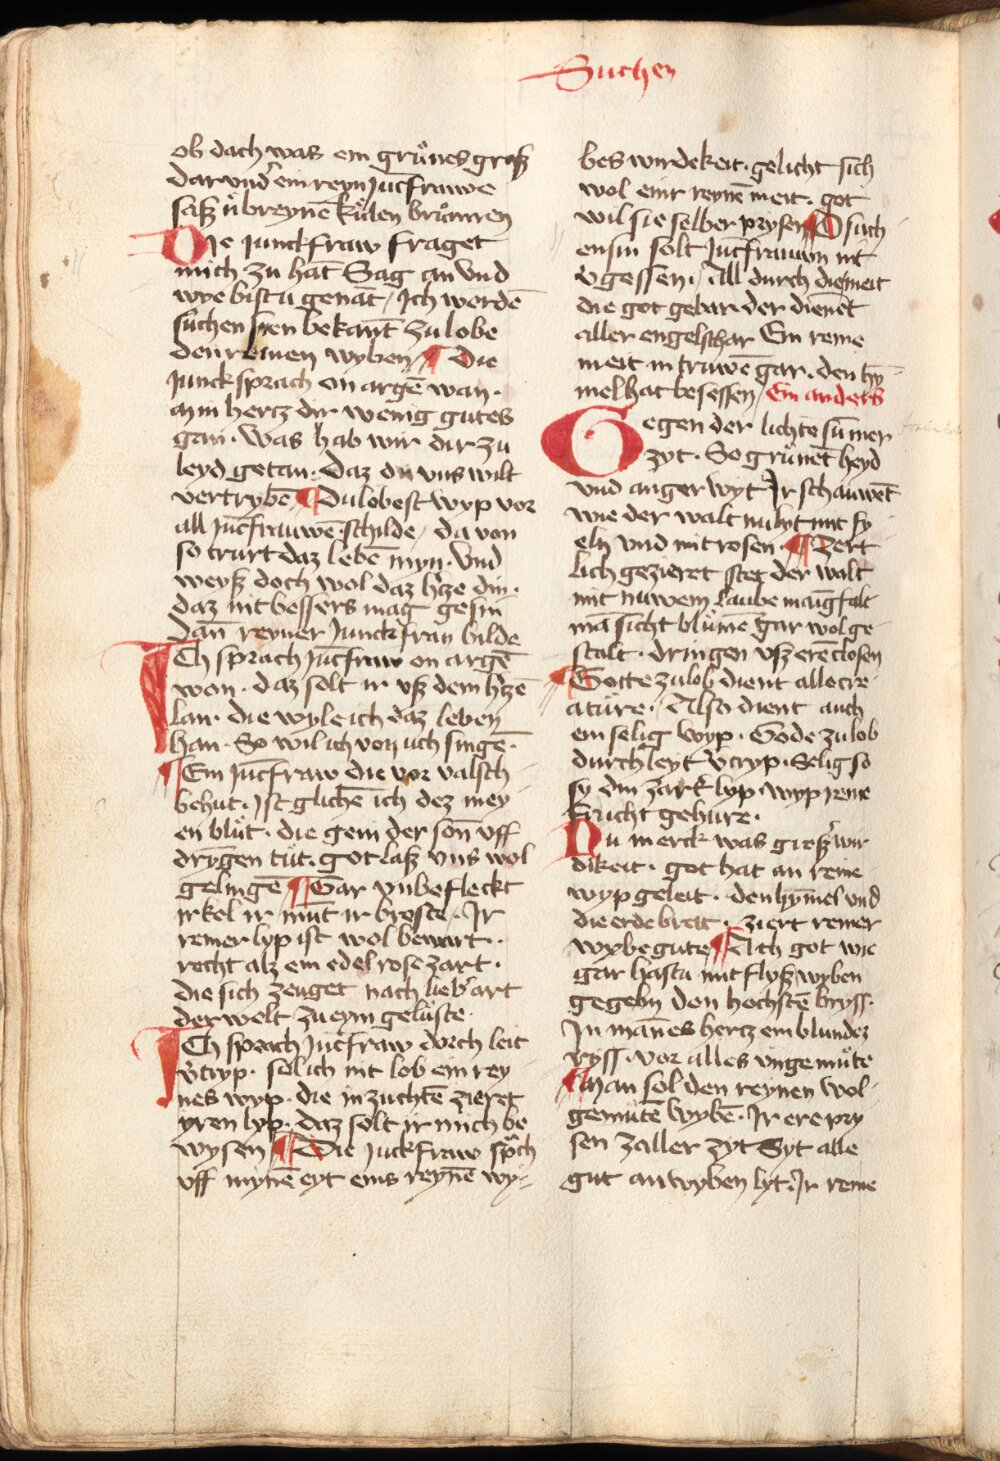 Suchen
ob dach was ein grůnes graß
darund̕ ein reyn Jūcfrauwe
saß ůbreynē kůlen brůnnen
Die Junckfraw fraget
mich zu hāt Sag an Vnd
wye bistu genāt / Ich werdē
suchen sien bekant̄ zu lobe
den reinen wyben / ¶ Die
Junck sprach on argē wan ·
myn hertz dir wenig gutes
gan · Was hab wir dir zu
leyd getan · Daz du vns wilt
vertrybē ¶ Du lobest wyp vor
all Jūcfrauwē schilde / da von
so trurt daz lebē myn · Vnd
weyß doch wol daz h̕tze din ·
daz nit bessers mag gesin
dan̄ reyner Junckfrau bilde
Ich sprach Jūcfraw on argē
won · daz solt ir vß dem h̕tzē
lan · die wyle ich daz leben
han · So wil ich von uch singē ·
¶ Ein Jūcfraw die vor valsch
behut · Ist glichē ich dez mey
en blůt · die gein der son̄ vff
drȳgen tůt · got laß vns wol
gelingē ¶ Gar vnbefleckt
ir kel ir mūt ir broste · Ir
reiner lyp ist wol bewart ·
recht alz ein edel rose zart ·
die sich zeuget nach lieb̕ art
der welt zu eym gelůste ·
Ich sprach Jūcfraw dorch leit
v̕tryp · sol ich nit lob ein rey
nes wyp · die in zuchtē zieret
yren lyp · daz solt ir mich be
wysen ¶ Die Juckfraw sp̊ch
vff mynē eyt eins reynē wy-
bes wirdekeit · gelicht sich
wol einr reynē meit · got
wil sie selber prysen ¶ O such
ensin solt Jūcfrauwn nit
v̕gessen · All durch die meit
die got gebar · der dienet̄
aller engelschar Ein reine
meit in truwē gar · den hȳ-
mel hat besessen / Ein anders
Gegen der lichte sūmer
zyt · So grůnet̄ heyd
vnd anger wyt Ir schauwet̄
wie der walt nu lyt mit fy
eln vnd mit rosen · ¶ Zert
lich gezieret stet der walt
mit nuwem laube maīgfalt
mā sicht blůmē gar wol ge
stalt · dringen vß erē closen
¶ Gotte zu lob dient alle cre
ature · Also dient auch
ein selig wyp · Gode zu lob
durch leyt v̕tryp · Selig so
sy din zart lyp · wyp reine
frucht gehure ·
Du merck was großz wir
dikeit · got hat an reine
wyp geleit · den hȳmel vnd
die erde breit · ziert reiner
wybe gute ¶ Ach got wie
gar hastu mit flyß wyben
gegebn den hochstē bryss ·
In mānes hertz ein blundez
ryss · vor alles vngemůte
¶ Man sol den reynen wol
gemůtē wybē · Ir ere pry
sen zaller zyt Syt alle
gut an wyben lyt · Ir reine